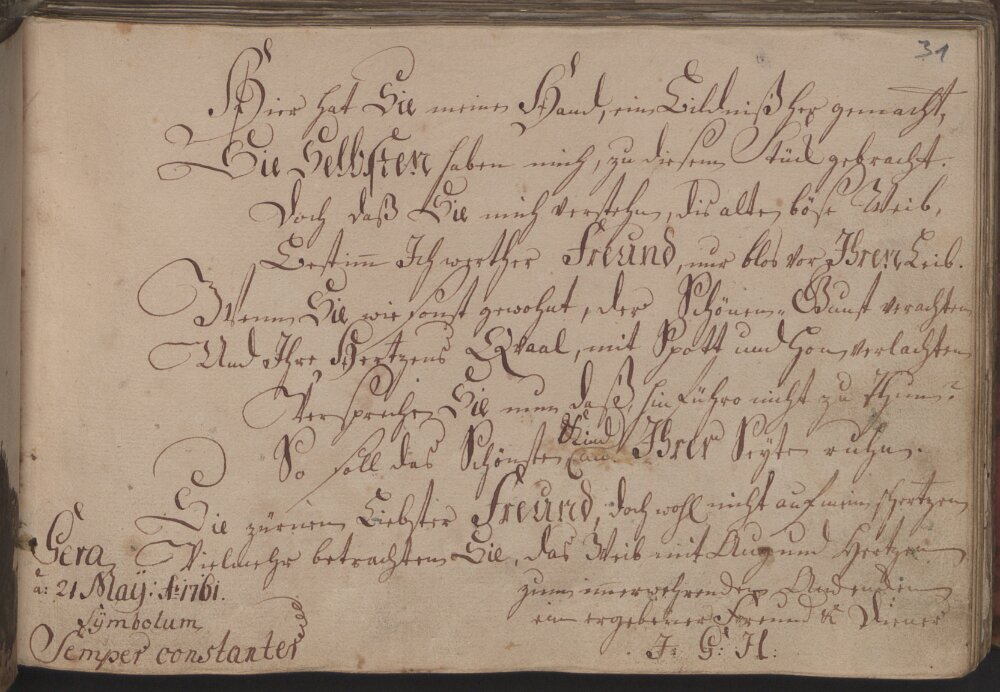 31
Hier hat Sie meine Hand, ein Bildniß her gemacht,
Sie Selbsten haben mich, zu diesem Stück gebracht.
Doch daß Sie mich verstehn, dis alte böse Weib,
Bestimm Ich werther Freund, nur blos vor Ihren Leib.
Wenn Sie wie sonst gewohnt, der Schönen Gunst verachten
Und Ihre Hertzens Qvaal, mit Spott und Hon verlachten
Versprechen Sie nun daß, hinführo nicht zu thun?
So soll das Schönsten Kind an Ihrer Seyten ruhn.
Sie zürnen Liebster Freund, doch wohl nicht auf mein schertzen
Vielmehr betrachten Sie, das Weib mit Aug und Hertzen
Gera
d: 21 May: Ao: 1761.
Symbolum
Semper constanter
zum immerwehrenden Andencken
ein ergebener Freund & Diener
J: G: H: